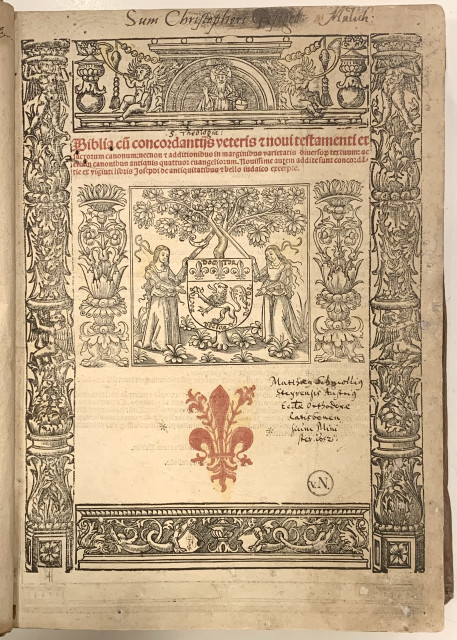 Sum Christopheri
s. Theologiæ:
Biblia cū concordantijs veteris ⁊ noui testamenti et
sacrorum canonum: necnon ⁊ additionibus in marginibus varietatis diuersoꝝ textuum: ac
etiam canonibus antiquis quattuor euangeliorum. Nouissime autem addite sunt concordā-
tie ex viginti libris Josephi de antiquitatibus ⁊ bello iudaico excerpte.
Matthæus
Styrensis Austria
Eccl̃æ Orthodoxæ
Ratisbonen
ster 1652.
v.N.